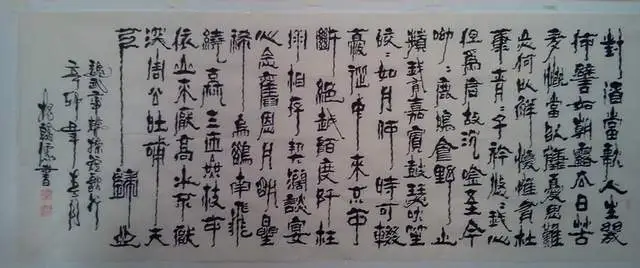 對酒當歌人生幾
何譬如朝露去日苦
多慨當以慷憂思難
忘何以解憂惟有杜
康青青子衿悠悠我心
但為君故沉吟至今
呦呦鹿鳴食野之
蘋我有嘉賓鼓瑟吹笙
皎皎如月何時可輟
憂從中來不可
斷絕越陌度阡枉
用相存契闊談宴
心念舊恩月明星
稀烏鵲南飛
繞樹三匝何枝可
依山不厭高水不厭
深周公吐哺天
下歸心
魏武帝曹操短歌行
辛卯年春月
書